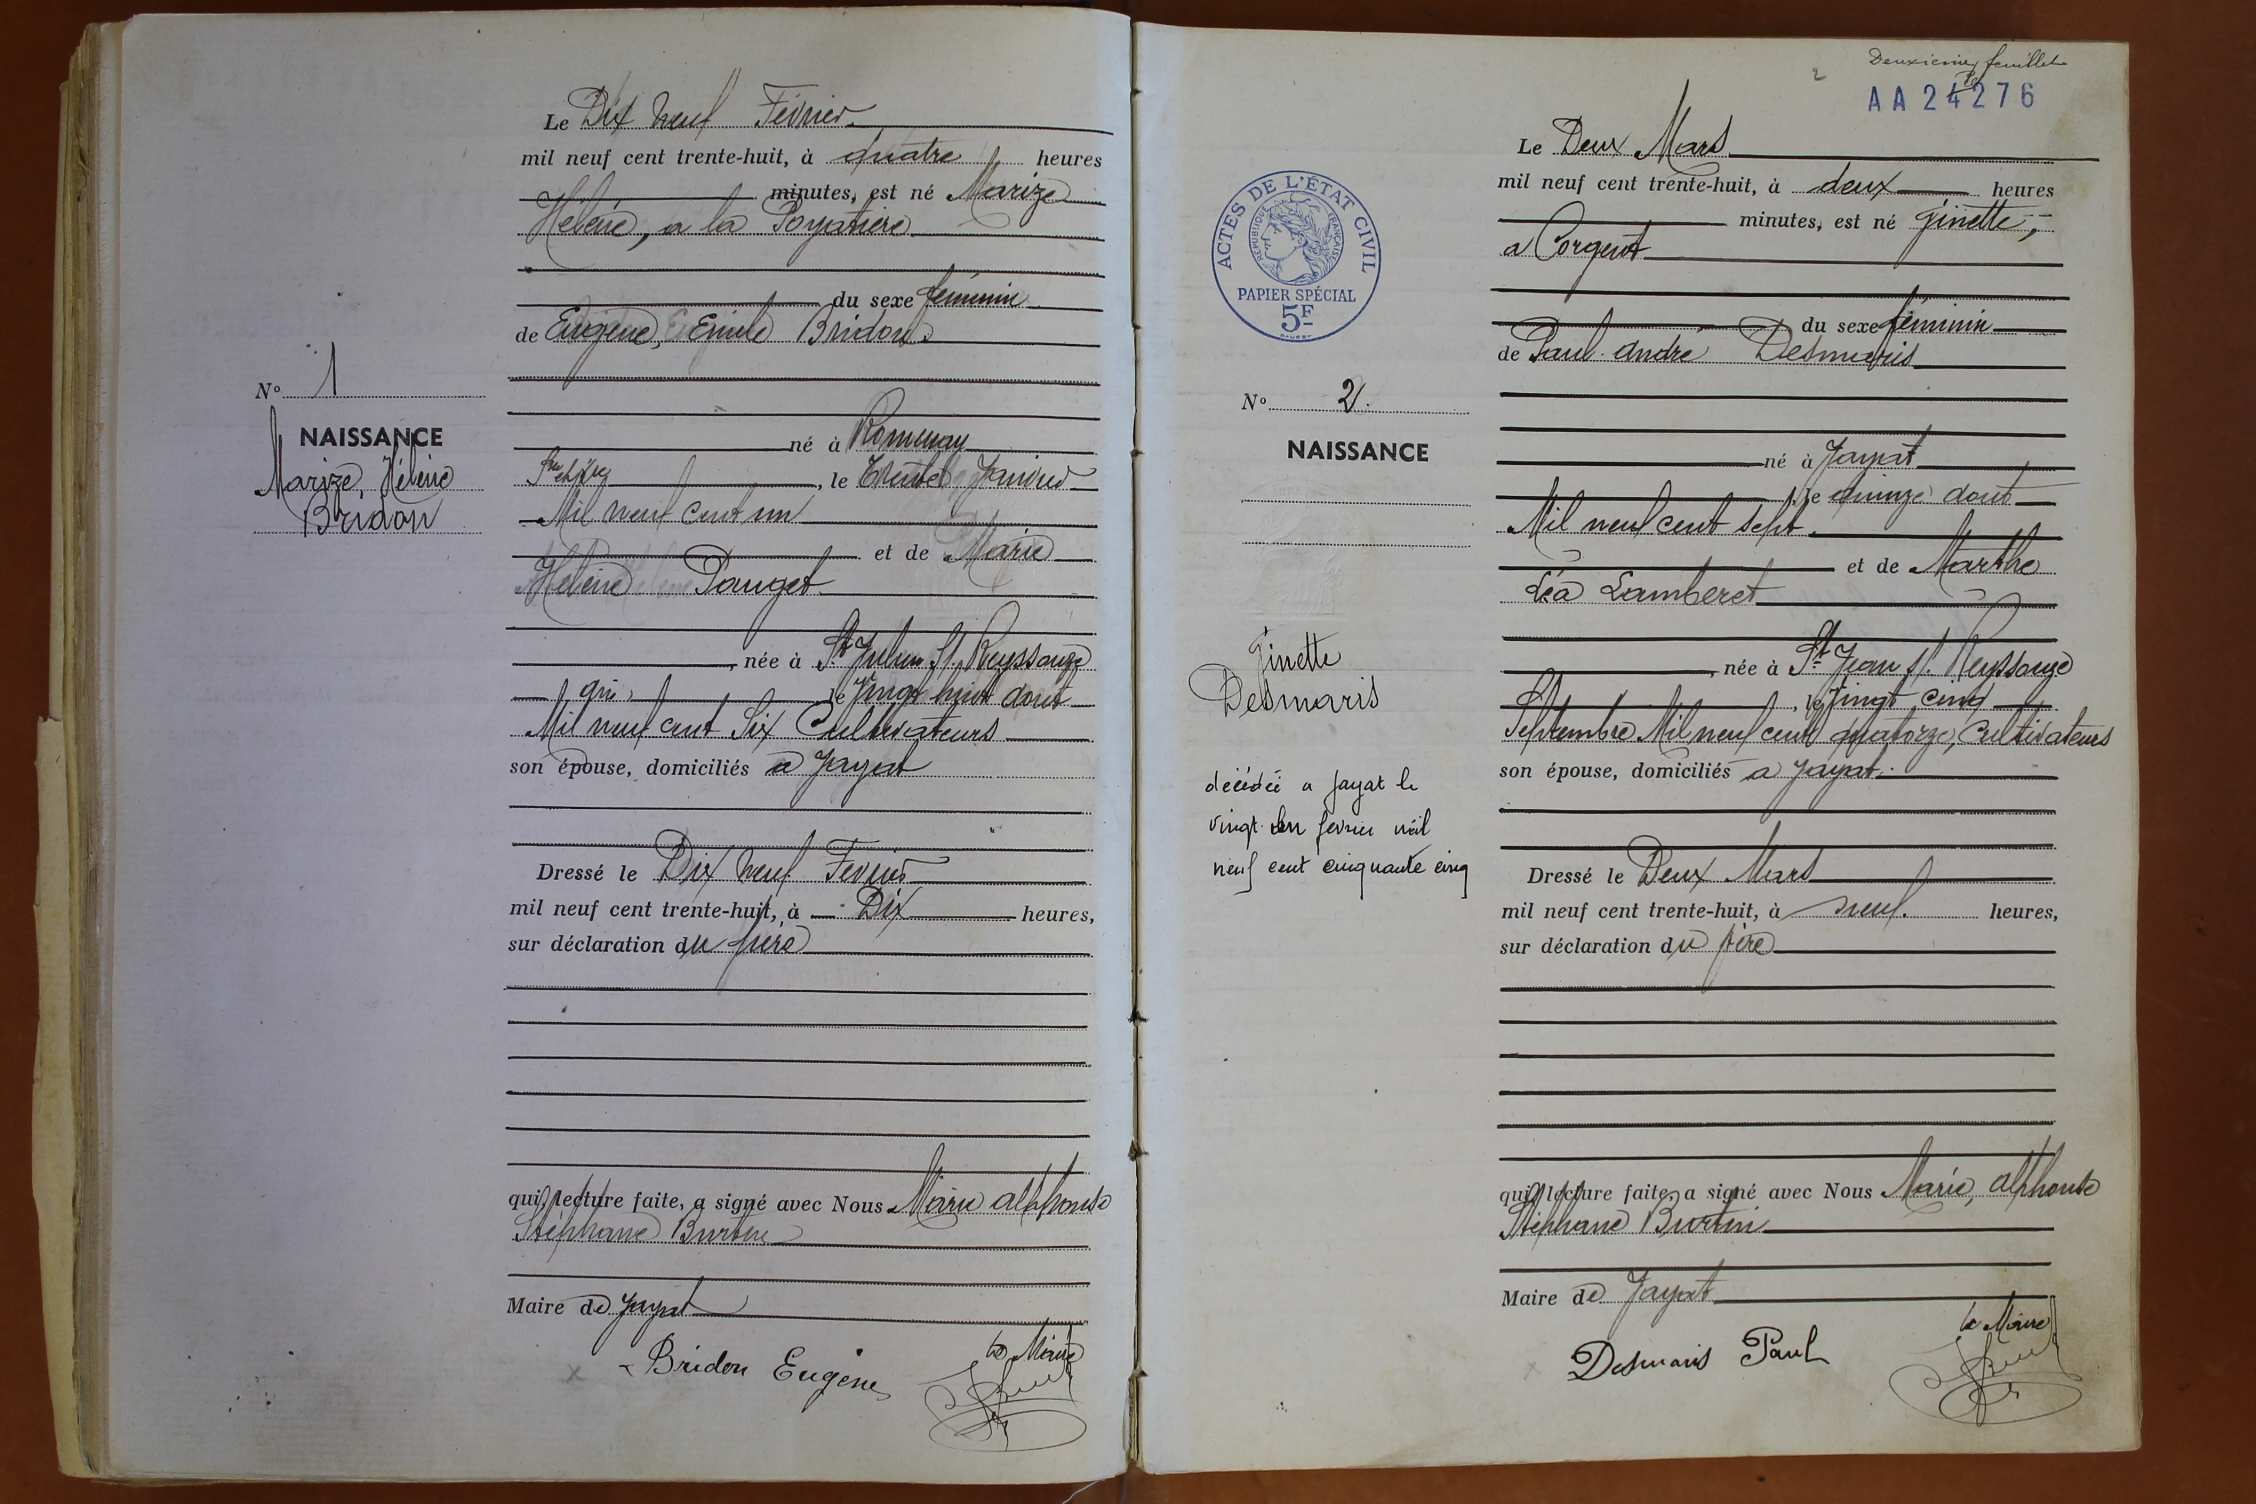 Le Dix neuf Février
mil neuf cent trente-huit, à quatre heures
minutes, est né Marize
Hélène, a la Poyatière
du sexe féminin
de Eugène, Emile Bridon
N° 1
NAISSANCE
Marize, Hélène
Bridon
né à Romenay
Sne et Loire, le trente Janvier
Mil neuf cent un
et de Marie
Hélène Pauget
née à St Julien s/. Reyssouze
Ain, le Vingt huit Aout
Mil neuf cent Six Cultivateurs
son épouse, domiciliés a Jayat
Dressé le Dix neuf Fevrier
mil neuf cent trente-huit, à Dix heures,
sur déclaration du père
qui, lecture faite, a signé avec Nous Marie Alphonse
Stéphane Burtin
Maire de Jayat
Bridon Eugène
Le Maire
Deuxième feuillet
2
AA 24276
Le Deux Mars
mil neuf cent trente-huit, à deux heures
minutes, est né Ginette,
a Corgeat
du sexe féminin
de Paul André Desmaris
ACTES DE L'ÉTAT CIVIL
RÉPUBLIQUE FRANÇAISE
PAPIER SPÉCIAL
5F
N° 2.
NAISSANCE
Ginette
Desmaris
décédée a Jayat le
vingt un fevrier mil
neuf cent cinquante cinq
né à Jayat
le quinze Aout
Mil neuf cent sept
et de Marthe
Léa Lamberet
née à St Jean s/. Reyssouze
, le Vingt cinq
Septembre Mil neuf cent quatorze, Cultivateurs
son épouse, domiciliés a Jayat.
Dressé le Deux Mars
mil neuf cent trente-huit, à neuf. heures,
sur déclaration du père
qui, lecture faite, a signé avec Nous Marie, Alphonse
Stéphane Burtin
Maire de Jayat
Desmaris Paul
Le Maire